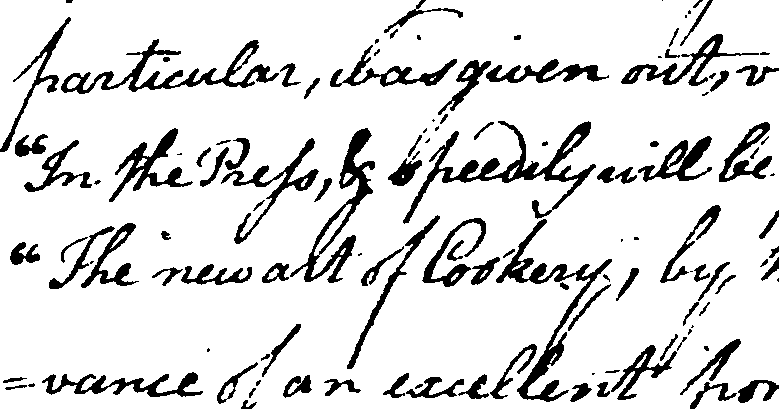 particular, was given out, v
“In the Press, & speedily will be
“The new art of Cookery, by
=vance of an excellent